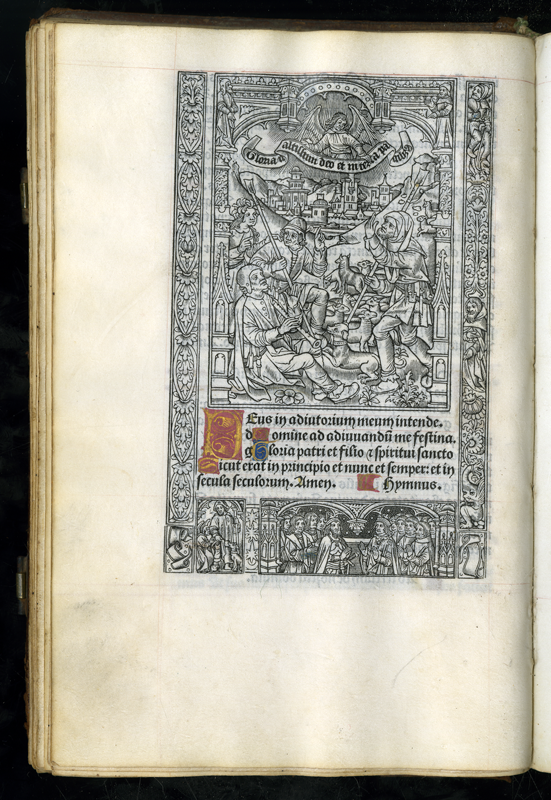 Gloria i altissimis deo et in terra pax
Deus in adiutorium meum intende.
domine ad adiuuandũ me festina.
gloria patri et filio ⁊ spiritui sancto
Sicut erat in principio et nunc et semper: et in
secula seculorum. Amen. Hymnus.